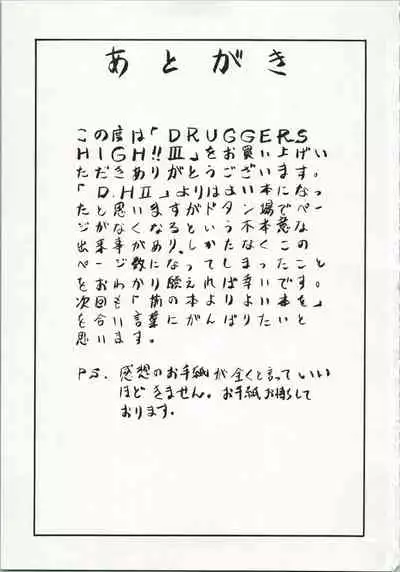 あとがき
この度は「DRUGGERS
HIGH!!Ⅲ」をお買い上げい
ただきありがとうございます。
「D.HⅡ」よりはよい本になっ
たと思いますがドタン場でペー
ジがなくなるという不本意な
出来事があり、しかたなくこの
ページ数になってしまったこと
をおわかり頂ければ幸いです。
次回も「前の本よりよい本を」
を合い言葉にがんばりたいと
思います。
PS. 感想のお手紙が全くと言っていい
ほどきません。お手紙お待ちして
おります。